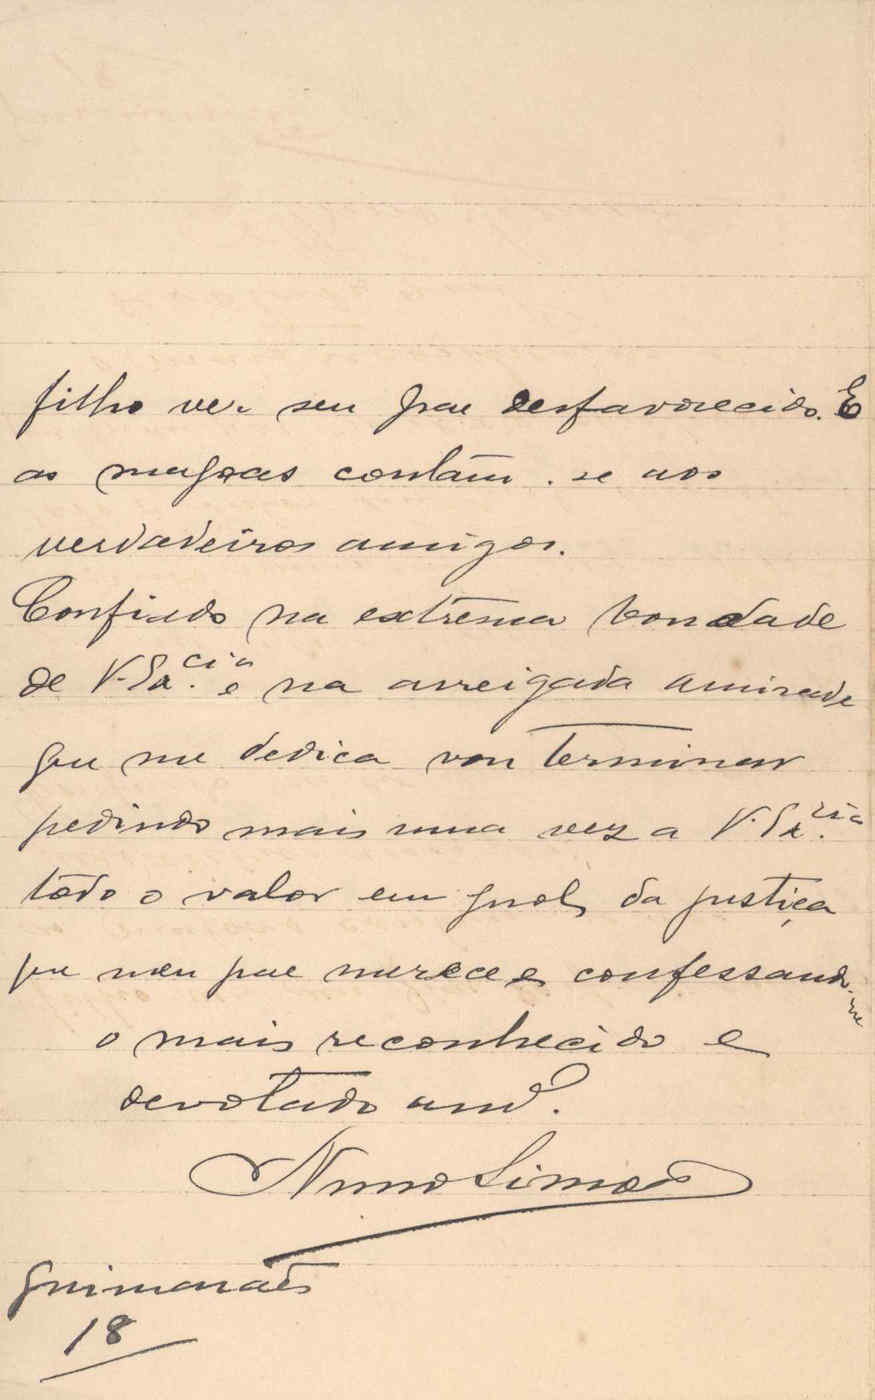 filho ver seu pae desfavorecido. E
as magoas contam-se aos
verdadeiros amigos.
Confiado na extrema bondade
de V. Ex.cia e na arreigada amizade
que me dedica vou terminar
pedindo mais uma vez a V. Ex.cia
todo o valor em prol da justiça
que meu pae merece e confessando-me
o mais reconhecido e
devotado am.º
Nuno Simões
Guimarães
18